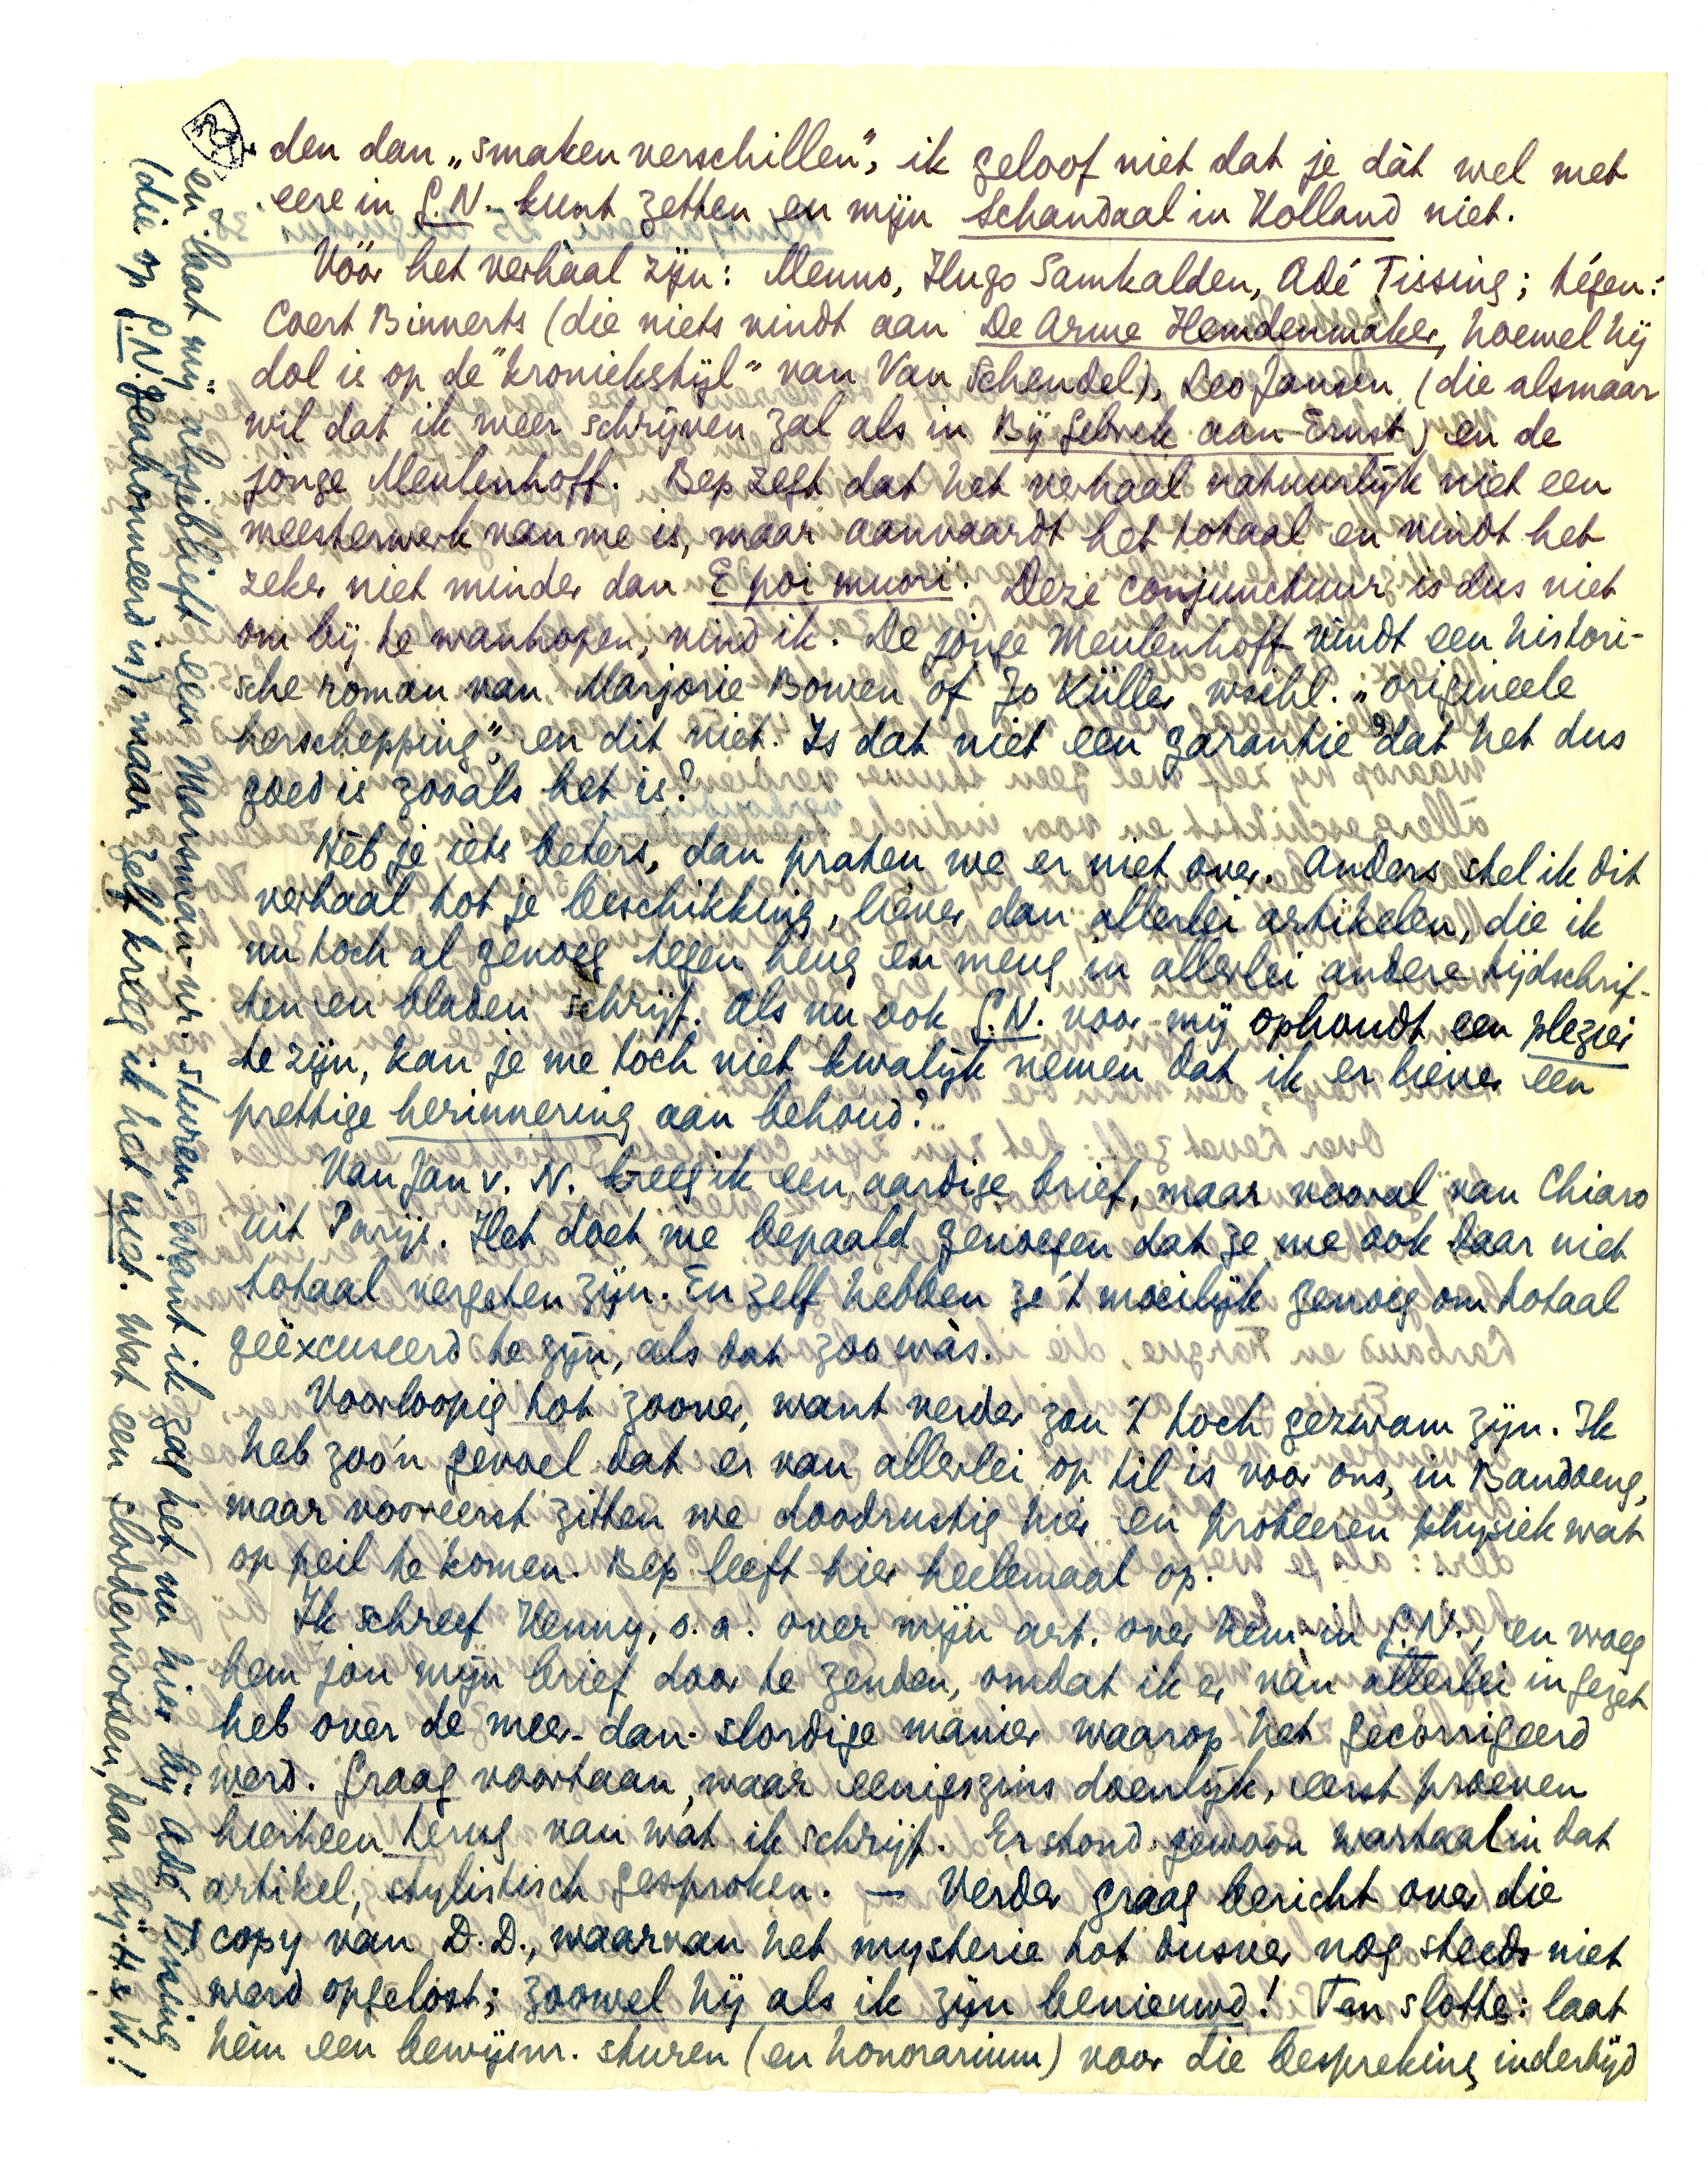 den dan „smaken verschillen”, ik geloof niet dat je dàt wel met
eere in G.N. kunt zetten en mijn Schandaal in Holland niet.
Vóór het verhaal zijn: Menno, Hugo Samkalden, Adé Tissing; tégen:
Coert Binnerts (die niets vindt aan De Arme Hemdenmaker, hoewel hij
dol is op de "kroniekstijl" van Van Schendel), Leo Jansen (die alsmaar
wil dat ik meer schrijven zal als in Bij Gebrek aan Ernst) en de
jonge Meulenhoff. Bep zegt dat het verhaal natuurlijk niet een
meesterwerk van me is, maar aanvaardt het totaal en vindt het
zeker niet minder dan E poi muori. Deze conjunctuur is dus niet
om bij te wanhopen, vind ik. De jonge Meulenhoff vindt een histori-
sche roman van Marjorie Bowen of Jo Küller wschl. „origineele
herschepping”, en dit niet. Is dat niet een garantie dat het dus
goed is zooals het is?
Heb je iets beters, dan praten we er niet over. Anders stel ik dit
verhaal tot je beschikking, liever dan allerlei artikelen, die ik
nu toch al genoeg tegen heug en meug in allerlei andere tijdschrif-
ten en bladen schrijf. Als nu ook G.N. voor mij ophoudt een plezier
te zijn, kan je me toch niet kwalijk nemen dat ik er liever een
prettige herinnering aan behoud?
Van Jan v. N. kreeg ik een aardige brief, maar vooral van Chiaro
uit Parijs. Het doet me bepaald genoegen dat ze me ook daar niet
totaal vergeten zijn. En zelf hebben ze 't moeilijk genoeg om totaal
geëxcuseerd te zijn, als dat zoo wàs.
Voorloopig tot zoover, want verder zou 't toch gezwam zijn. Ik
heb zoo'n gevoel dat er van allerlei op til is voor ons, in Bandoeng,
maar vooreerst zitten we doodrustig hier en probeeren physiek wat
op peil te komen. Bep leeft hier heelemaal op.
Ik schreef Henny, o.a. over mijn art. over hem in G.N., en vroeg
hem jou mijn brief door te zenden, omdat ik er van allerlei in gezet
heb over de meer-dan-slordige manier waarop het gecorrigeerd
werd. Graag voortaan, waar eenigszins doenlijk, eerst proeven
hierheen terug van wat ik schrijf. Er stond gewoon wartaal in dat
artikel, stylistisch gesproken. — Verder graag bericht over die
copy van D.D., waarvan het mysterie tot dusver nog steeds niet
werd opgelost; zoowel hij als ik zijn benieuwd! Ten slotte: laat
hèm een bewijsnr. sturen (en honorarium) voor die bespreking indertijd
en laat mij alsjeblieft een Marsman-nr. sturen, want ik zag het nu hier bij Adé Tissing
(die op G.N. geabonneerd is), maar zelf kreeg ik het niet. Wat een sloddervossen, daar bij H. & W.!